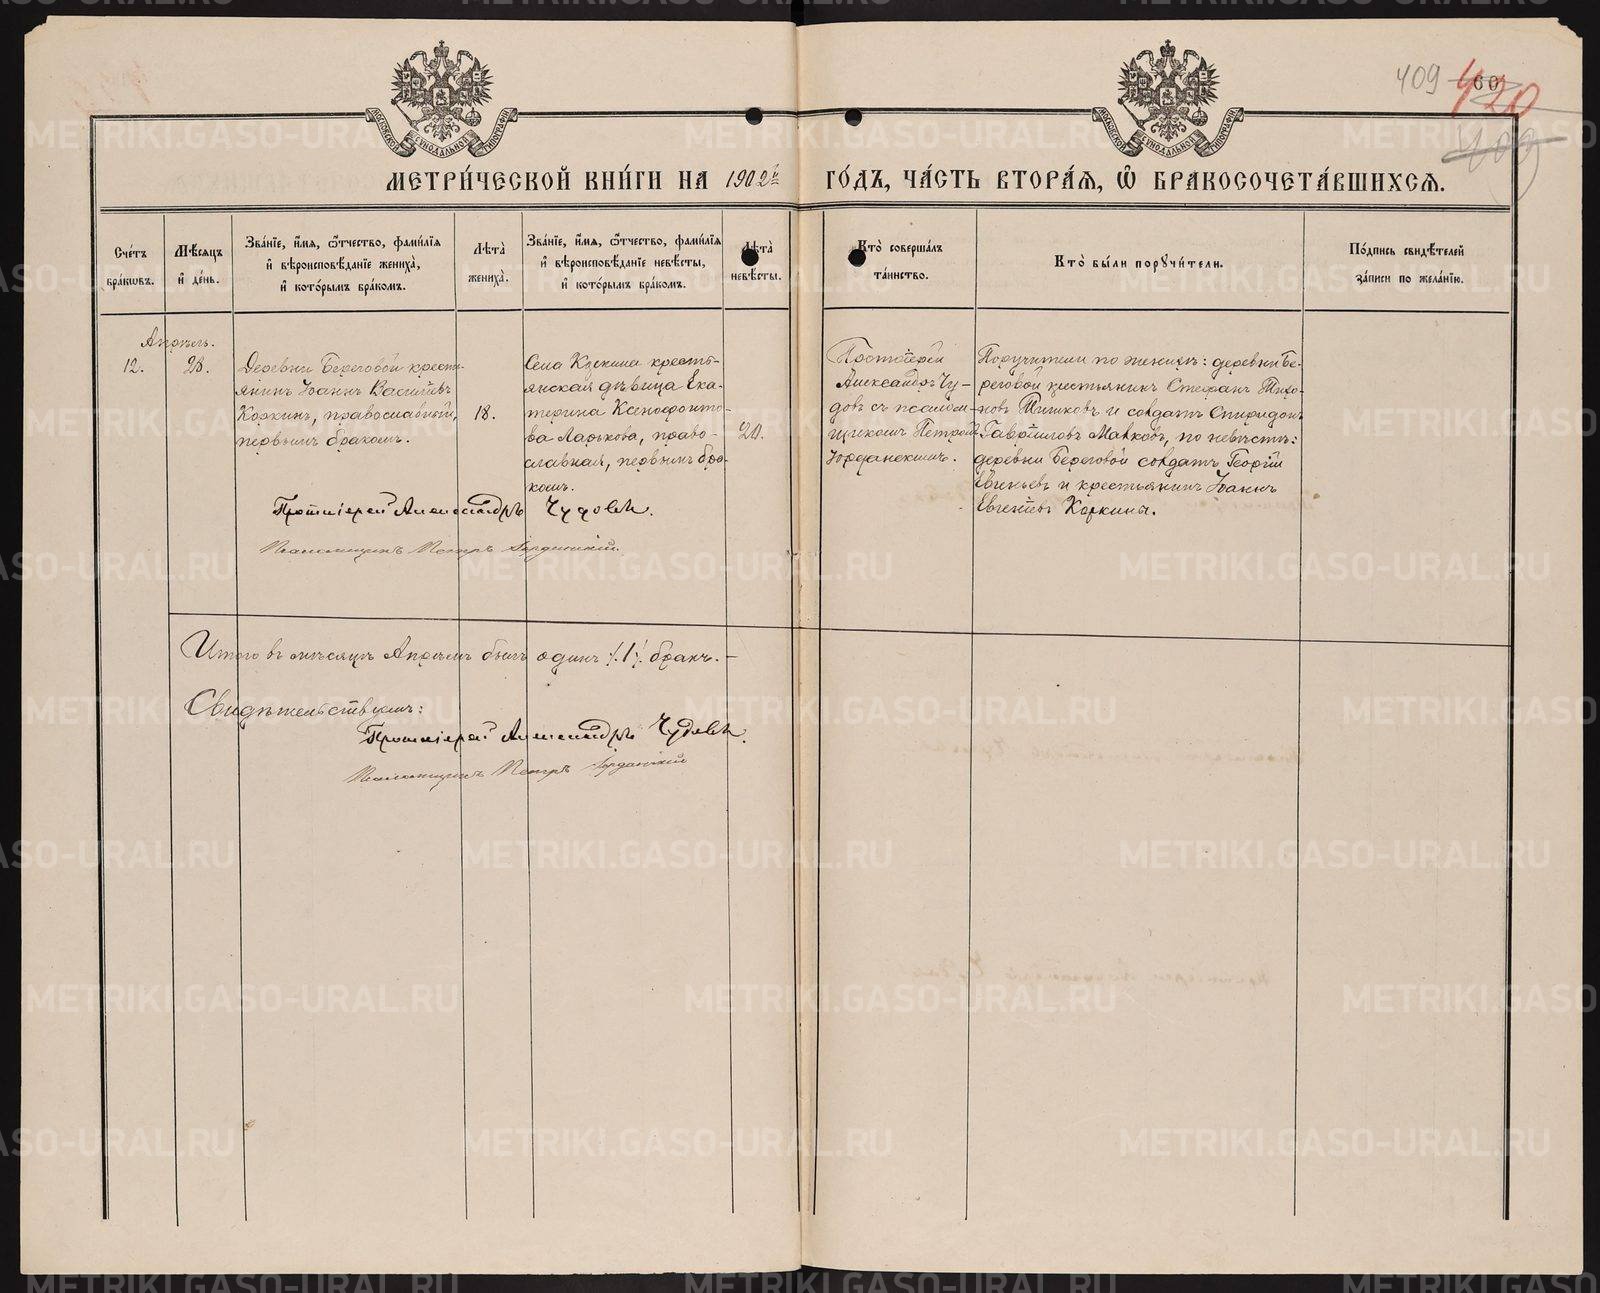 409 420 60
409
МОСКОВСКОЙ СѴНОДАЛЬНОЙ ТИПОГРАФІИ
МОСКОВСКОЙ СѴНОДАЛЬНОЙ ТИПОГРАФІИ
МЕТРИ́ЧЕСКОЙ КНИ́ГИ НА 1902й ГО́ДЪ, ЧА́СТЬ ВТОРА́Я, Ѿ БРАКОСОЧЕТА́ВШИХСЯ.
Сче́тъ бра́ковъ.
Мѣ́сяцъ и҆ де́нь.
Зва́нїе, и҆́мя, ѻ҆́тчество, фами́лїя и҆ вѣроисповѣ́данїе жениха̀, и҆ кото́рымъ бра́комъ.
Лѣ́та жениха̀.
Зва́нїе, и҆́мя, ѻ҆́тчество, фами́лїя и҆ вѣроисповѣ́данїе невѣ́сты, и҆ кото́рымъ бра́комъ.
Лѣ́та невѣ́сты.
Кто̀ соверша́лъ та́инство.
Кто̀ бы́ли порꙋчи́тели.
По́дпись свидѣ́телей за́писи по жела́нїю.
Апрѣль.
12.
28.
Деревни Береговой крестъ-
янинъ Іоаннъ Васильевъ
Коркинъ, православный,
первымъ бракомъ.
18.
Села Кускина кресть-
янская дѣвица Ека-
терина Ксенофонто-
ва Ларькова, право-
славная, первымъ бра-
комъ.
20.
Протоіерей
Александръ Чу-
довъ съ псалом-
щикомъ Петромъ
Іорданскимъ.
Поручители по женихѣ: деревни Бе-
реговой крестьянинъ Стефанъ Тихо-
новъ Тишковъ и солдатъ Спиридонъ
Гавриловъ Манковъ, по невѣстѣ:
деревни Береговой солдатъ Георгій
Евгеньевъ и крестьянинъ Іоаннъ
Евгеніевъ Коркины.
Протоіерей Александръ Чудовъ.
Псаломщикъ Петръ Іорданскій.
Итого въ мѣсяцѣ Апрѣлѣ былъ одинъ /.1/. бракъ.
Свидѣтельствуемъ:
Протоіерей Александръ Чудовъ.
Псаломщикъ Петръ Іорданскій
METRIKI.GASO-URAL.RU